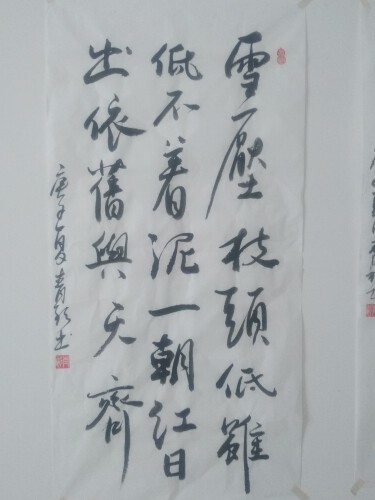 雪壓枝頭低雖
低不着泥一朝紅日
出依舊與天齊
庚子夏青龍書